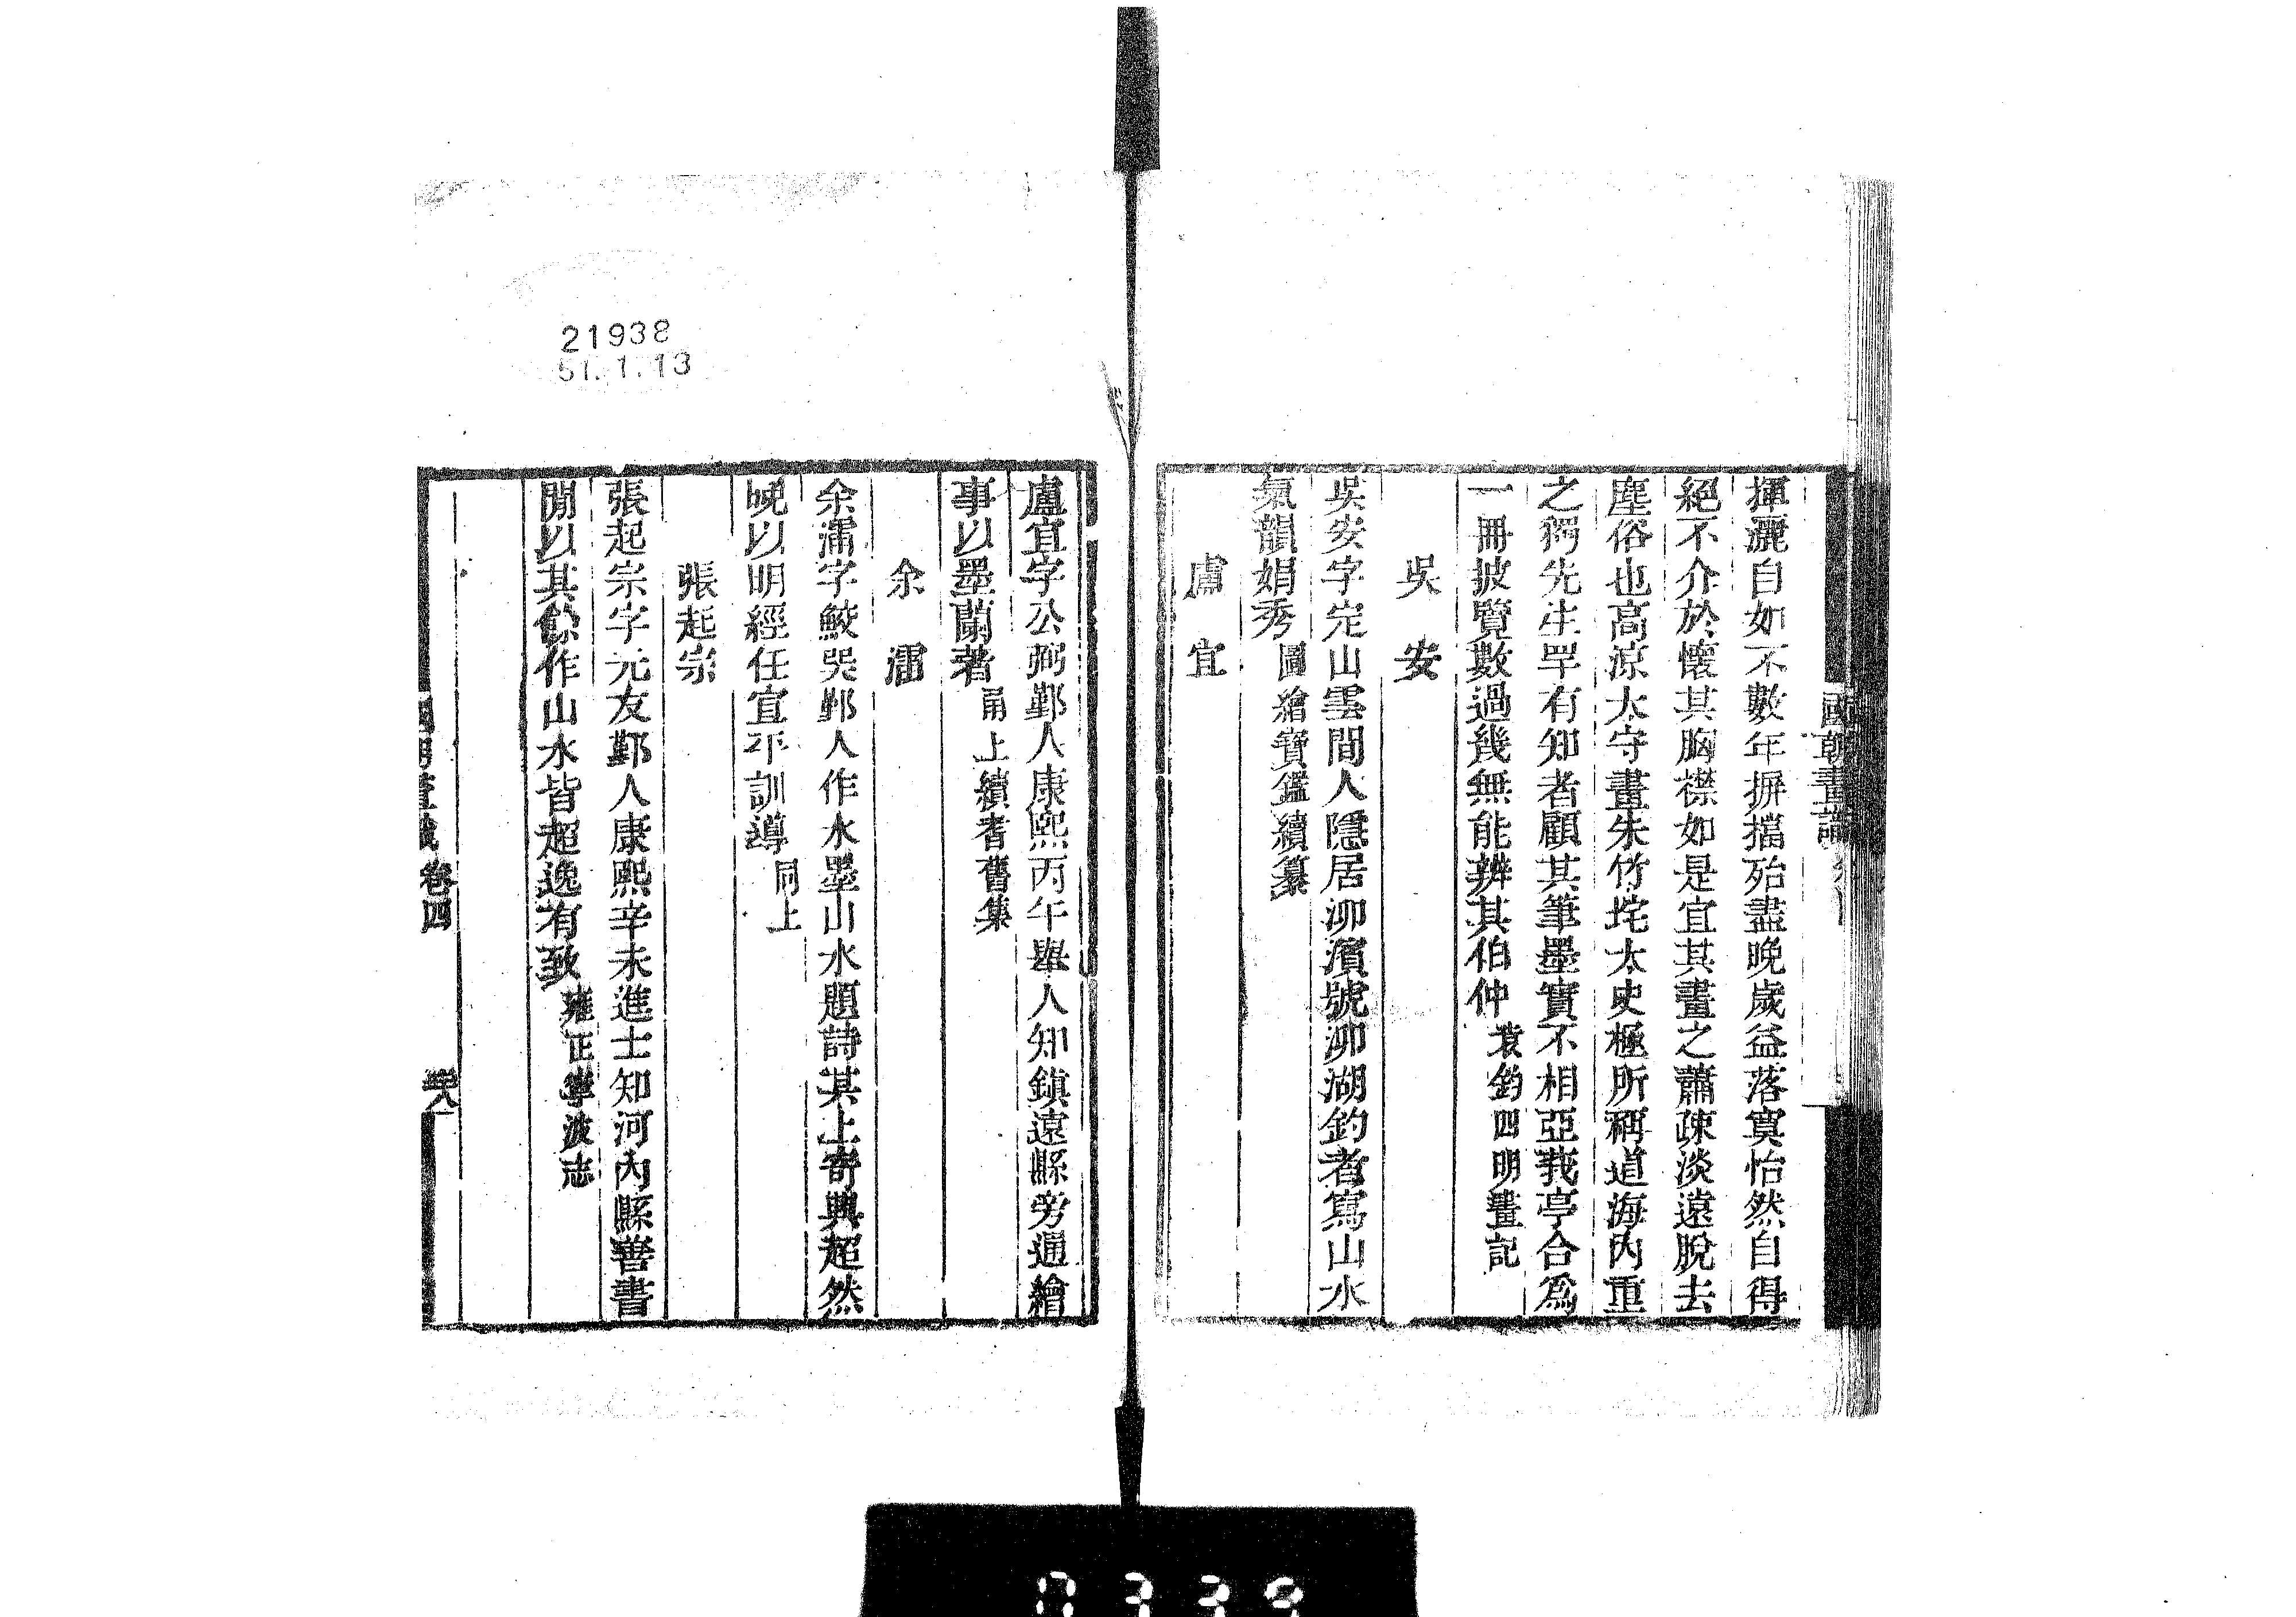 國朝畫識
揮灑自如不數年摒擋殆盡晚歲益落寞怡然自得
絕不介於懷其胸襟如是宜其畫之蕭疎淡遠脫去
塵俗也高涼太守畫朱竹垞太史極所稱道海內重
之獨先生罕有知者顧其筆墨實不相亞莪亭合爲
一冊披覽數過幾無能辨其伯仲袁鈞四明畫記
吳安
吳安字定山雲間人隱居泖濱號泖湖釣者寫山水
氣韻娟秀圖繪寶鑑續纂
盧宜
盧宜字公弼鄞人康熙丙午舉人知鎮遠縣旁通繪
事以墨蘭著甬上續耆舊集
余𩃎
余𩃎字鮫吳鄞人作水墨山水題詩其上寄興超然
晚以明經任宣平訓導同上
張起宗
張起宗字元友鄞人康熙辛未進士知河內縣善書
閒以其餘作山水皆超逸有致雍正寧波志
卷四
21938
51.1.13
0339